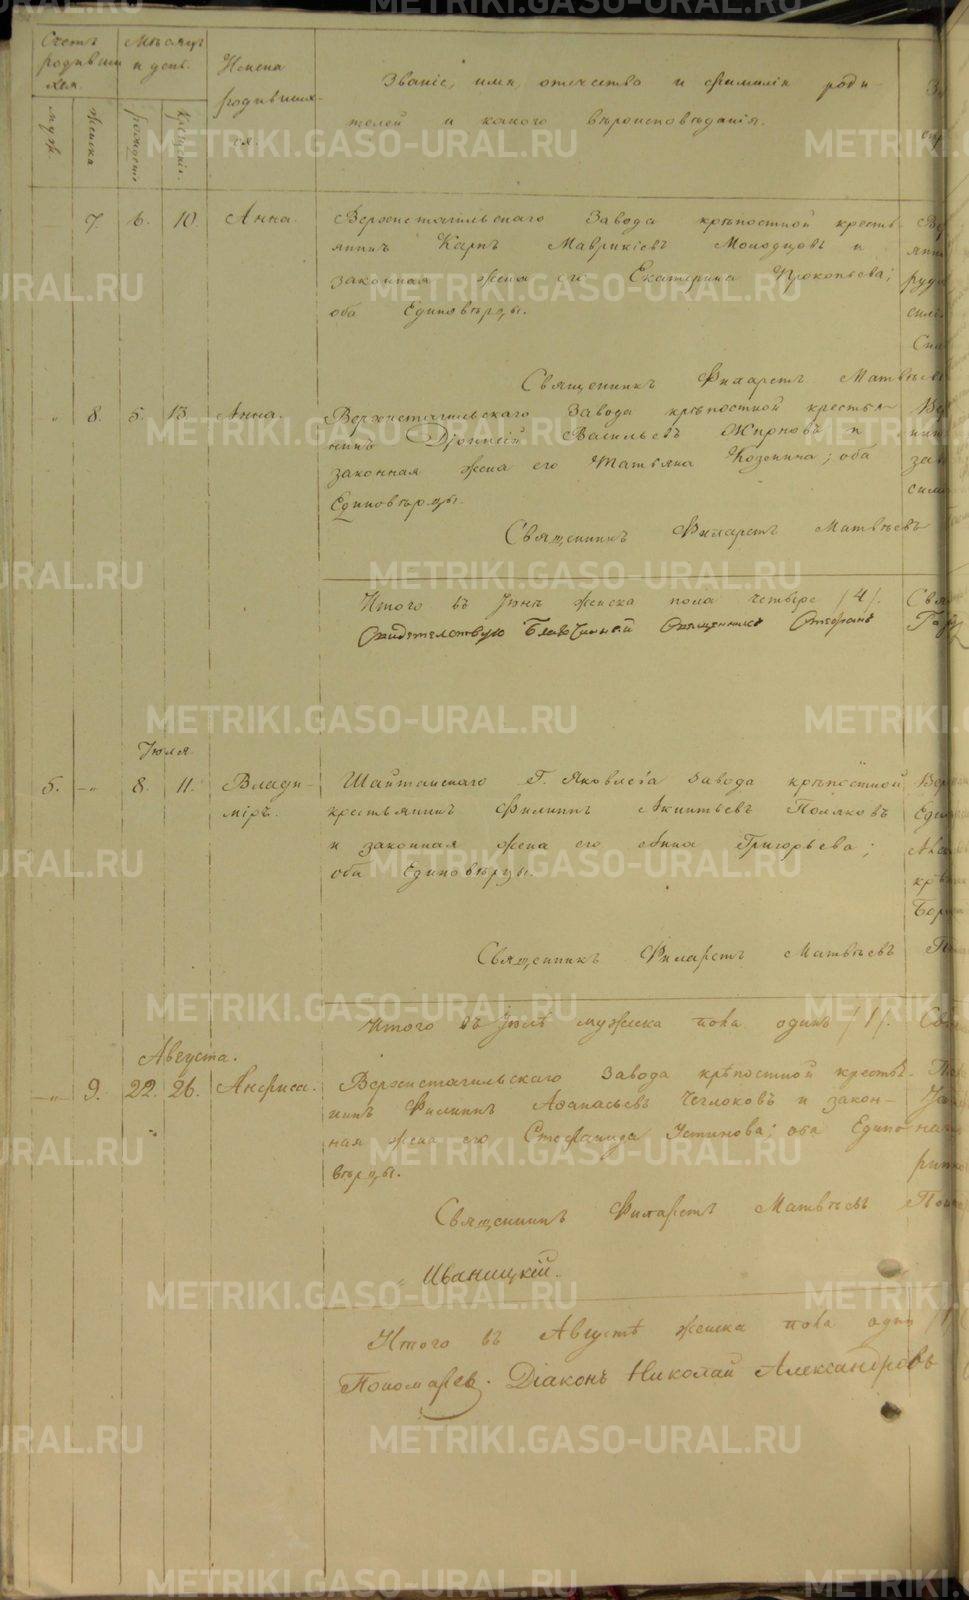 Счетъ родившихся.
Мѣсяцъ и день.
Имена родивших-ся.
Званіе, имя, отечество и фамилія роди-
телей и какого вѣроисповѣданія.
муж.
женска
рожденія
крещенія.
7. 6. 10. Анна. Верхнетагильскаго Завода крѣпостной кресть-
янинъ Карпъ Маврикіевъ Молодцовъ и
законная жена его Екатерина Прокопьева;
оба Единовѣрцы.
Священникъ Филаретъ Матвѣевъ
" 8. 5. 13. Анна. Верхнетагильскаго Завода крѣпостной крестья-
нинъ Діонисій Васильевъ Жирновъ и
законная жена его Татьяна Козмина; оба
Единовѣрцы.
Священникъ Филаретъ Матвѣевъ
Итого въ Іюнѣ женска пола четыре /4/.
Свидетелствую Благочинный Священникъ Стефанъ
Іюля
5. -"- 8. 11. Влади- Шайтанскаго Г. Яковлева завода крѣпостной
міръ. крестьянинъ Филиппъ Акинтьевъ Поляковъ
и законная жена его Анна Григорьева;
оба Единовѣрцы.
Священникъ Филаретъ Матвѣевъ
Итого въ Іюлѣ мужска пола одинъ /1/.
Августа.
-"- 9. 22. 26. Анфиса. Верхнетагильскаго Завода крѣпостной крестья-
нинъ Филиппъ Афанасьевъ Чеглоковъ и закон-
ная жена его Стефанида Устинова; оба Едино-
вѣрцы.
Священникъ Филаретъ Матвѣевъ
Иваницкій.
Итого въ Августѣ женска пола одна /1
Пономаревъ. Діаконъ Николай Александровъ
METRIKI.GASO-URAL.RU